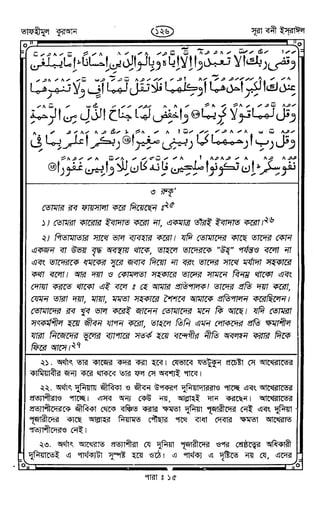 তাফহীমুল কুরআন
১২৬
সূরা বনী ইসরাঈল
وَقَضٰى رَبُّكَ اَلَّا تَعْبُدُوْٓا اِلَّآ اِيَّاهُ وَبِالْوَالِدَيْنِ اِحْسَانًا ؕ اِمَّا يَبْلُغَنَّ
عِنْدَكَ الْكِبَرَ اَحَدُهُمَآ اَوْ كِلٰهُمَا فَلَا تَقُلْ لَّهُمَآ اُفٍّ وَّلَا تَنْهَرْهُمَا
وَقُلْ لَّهُمَا قَوْلًا كَرِيْمًا ۝ وَاخْفِضْ لَهُمَا جَنَاحَ الذُّلِّ مِنَ الرَّحْمَةِ
وَقُلْ رَّبِّ ارْحَمْهُمَا كَمَا رَبَّيٰنِيْ صَغِيْرًا ۝ رَبُّكُمْ اَعْلَمُ بِمَا فِيْ
نُفُوْسِكُمْ ؕ اِنْ تَكُوْنُوْا صٰلِحِيْنَ فَاِنَّهٗ كَانَ لِلْاَوَّابِيْنَ غَفُوْرًا ۝
৩ রুকূ'
তোমার রব ফায়সালা করে দিয়েছেন ঃ২৫
১। তোমরা কারোর ইবাদাত করো না, একমাত্র তাঁরই ইবাদাত করো।২৬
২। পিতামাতার সাথে ভাল ব্যবহার করো। যদি তোমাদের কাছে তাদের কোন
একজন বা উভয় বৃদ্ধ অবস্থায় থাকে, তাহলে তাদেরকে "উহ্" পর্যন্তও বলো না
এবং তাদেরকে ধমকের সুরে জবাব দিয়ো না বরং তাদের সাথে মর্যাদা সহকারে
কথা বলো। আর দয়া ও কোমলতা সহকারে তাদের সামনে বিনম্র থাকো এবং
দোয়া করতে থাকো এই বলে ঃ হে আমার প্রতিপালক! তাদের প্রতি দয়া করো,
যেমন তারা দয়া, মায়া, মমতা সহকারে শৈশবে আমাকে প্রতিপালন করেছিলেন।
তোমাদের রব খুব ভাল করেই জানেন তোমাদের মনে কি আছে। যদি তোমরা
সৎকর্মশীল হয়ে জীবন যাপন করো, তাহলে তিনি এমন লোকদের প্রতি ক্ষমাশীল
যারা নিজেদের ভুলের ব্যাপারে সতর্ক হয়ে বন্দেগীর নীতি অবলম্বন করার দিকে
ফিরে আসে।২৭
২১. অর্থাৎ তার কাজের কদর করা হবে। যেভাবে যতটুকুন প্রচেষ্টা সে আখেরাতের
কামিয়াবীর জন্য করে থাকবে তার ফল সে অবশ্যই পাবে।
২২. অর্থাৎ দুনিয়ায় জীবিকা ও জীবন উপকরণ দুনিয়াদাররাও পাচ্ছে এবং আখেরাতের
প্রত্যাশীরাও পাচ্ছে। এসব অন্য কেউ নয়, আল্লাহই দান করছেন। আখেরাতের
প্রত্যাশীদেরকে জীবিকা থেকে বঞ্চিত করার ক্ষমতা দুনিয়া পূজারীদের নেই এবং দুনিয়া
পূজারীদের কাছে আল্লাহর নিয়ামত পৌঁছার পথে বাধা দেবার ক্ষমতা আখেরাত
প্রত্যাশীদেরও নেই।
২৩. অর্থাৎ আখেরাত প্রত্যাশীরা যে দুনিয়া পূজারীদের ওপর শ্রেষ্ঠত্বের অধিকারী
দুনিয়াতেই এ পার্থক্যটা সুস্পষ্ট হয়ে ওঠে। এ পার্থক্য এ দৃষ্টিতে নয় যে, এদের
পারা ঃ ১৫